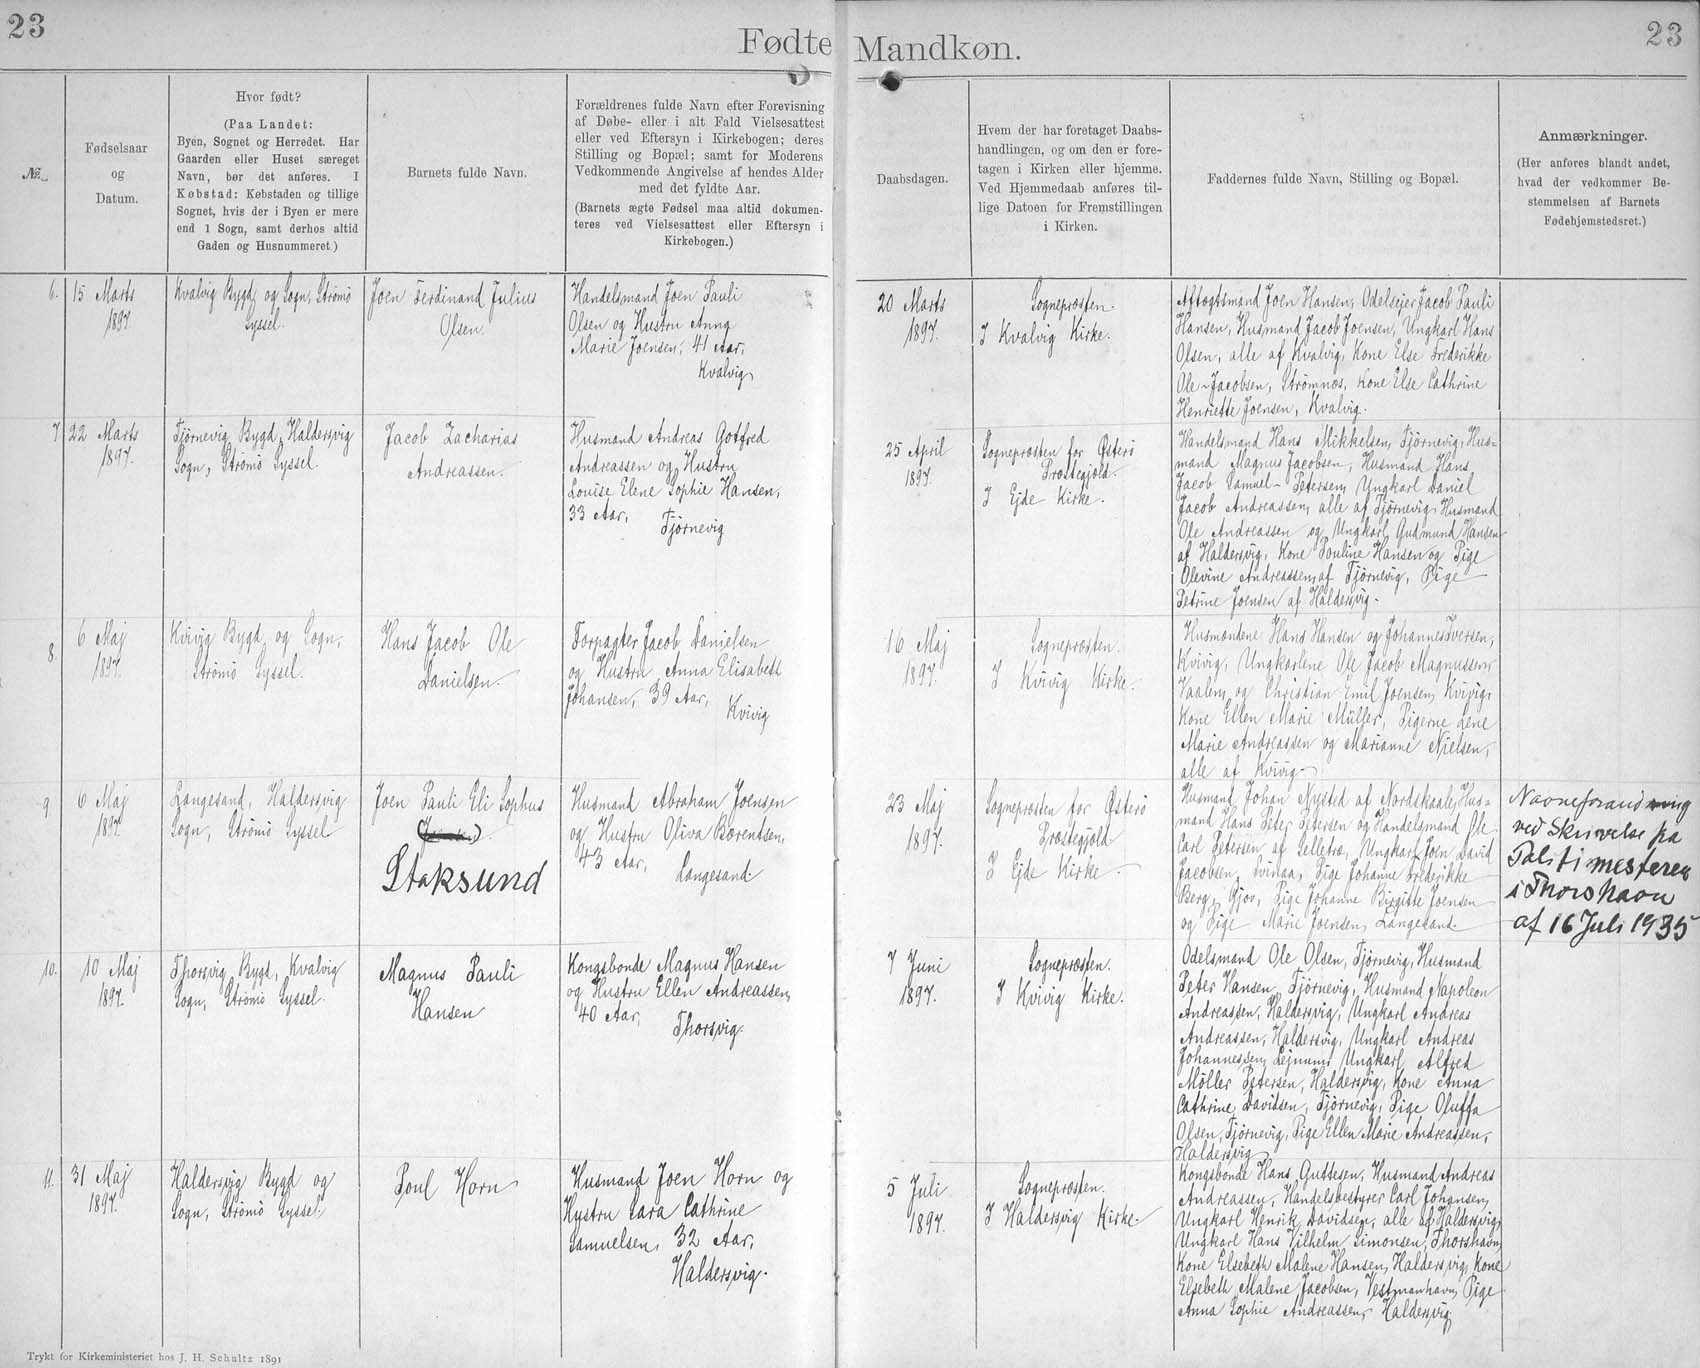 23
Fødte
No.
Fødselsaar
og
Datum.
Hvor født?
(Paa Landet:
Byen, Sognet og Herredet. Har
Gaarden eller Huset særeget
Navn, bør det anføres. I
Købstad: Købstaden og tillige
Sognet, hvis der i Byen er mere
end 1 Sogn, samt derhos altid
Gaden og Husnummeret.)
Barnets fulde Navn.
Forældrenes fulde Navn efter Forevisning
af Døbe- eller i alt Fald Vielsesattest
eller ved Eftersyn i Kirkebogen; deres
Stilling og Bopæl; samt for Moderens
Vedkommende Angivelse af hendes Alder
med det fyldte Aar.
(Barnets ægte Fødsel maa altid dokumen-
teres ved Vielsesattest eller Eftersyn i
Kirkebogen.)
6.
15 Marts
1897.
Kvalvig Bygd og Sogn, Strømø
Syssel.
Joen Ferdinand Julius
Olsen.
Handelsmand Joen Pauli
Olsen og Hustru Anna
Marie Joensen, 41 Aar,
Kvalvig
7
22 Marts
1897.
Tjørnevig Bygd, Haldersvig
Sogn, Strømø Syssel.
Jacob Zacharias
Andreassen.
Husmand Andreas Gotfred
Andreassen og Hustru
Louise Elene Sophie Hansen,
33 Aar,
Tjørnevig
8.
6 Maj
1897.
Kvivig Bygd og Sogn,
Strømø Syssel.
Hans Jacob Ole
Danielsen.
Forpagter Jacob Danielsen
og Hustru Anna Elisabeth
Johansen, 39 Aar,
Kvivig
9
6 Maj
1897.
Langesand, Haldersvig
Sogn, Strømø Syssel
Joen Pauli Eli Sophus
Staksund
Husmand Abraham Joensen
og Hustru Oliva Bærentsen,
43 Aar,
Langesand.
10.
10 Maj
1897.
Thorsvig Bygd, Kvalvig
Sogn, Strømø Syssel.
Magnus Pauli
Hansen
Kongsbonde Magnus Hansen
og Hustru Ellen Andreassen,
40 Aar,
Thorsvig.
11.
31 Maj
1897.
Haldersvig Bygd og
Sogn, Strømø Syssel.
Poul Horn
Husmand Joen Horn og
Hustru Sara Cathrine
Samuelsen, 32 Aar,
Haldersvig.
Trykt for Kirkeministeriet hos J. H. Schultz 1891
Mandkøn.
23
Daabsdagen.
Hvem der har foretaget Daabs-
handlingen, og om den er fore-
tagen i Kirken eller hjemme.
Ved Hjemmedaab anføres til-
lige Datoen for Fremstillingen
i Kirken.
Faddernes fulde Navn, Stilling og Bopæl.
Anmærkninger.
(Her anføres blandt andet,
hvad der vedkommer Be-
stemmelsen af Barnets
Fødehjemstedsret.)
20 Marts
1897.
Sognepræsten.
I Kvalvig Kirke.
Aftægtsmand Joen Hansen, Odelsejer Jacob Pauli
Hansen, Husmand Jacob Joensen, Ungkarl Hans
Olsen, alle af Kvalvig, Kone Else Frederikke
Ole-Jacobsen, Strømnæs, Kone Else Cathrine
Henriette Joensen, Kvalvig.
25 April
1897.
Sognepræsten for Østerø
Præstegjeld.
I Ejde Kirke.
Handelsmand Hans Mikkelsen, Tjørnevig, Hus-
mand Magnus Jacobsen, Husmand Hans
Jacob Samuel-Petersen, Ungkarl Daniel
Jacob Andreassen, alle af Tjørnevig, Husmand
Ole Andreassen og Ungkarl Gudmund Hansen
af Haldersvig, Kone Pouline Hansen og Pige
Olevine Andreassen af Tjørnevig, Pige
Petrine Joensen af Haldersvig.
16 Maj
1897.
Sognepræsten.
I Kvivig Kirke.
Husmændene Hans Hansen og Johannes Iversen,
Kvivig, Ungkarlene Ole Jacob Magnussen,
Vaalen, og Christian Emil Joensen, Kvivig,
Kone Ellen Marie Müller, Pigerne Lene
Marie Andreassen og Marianne Nielsen,
alle af Kvivig.
23 Maj
1897.
Sognepræsten for Østerø
Præstegjeld
I Ejde Kirke.
Husmand Johan Nysted af Nordskaale, Hus-
mand Hans Peter Petersen og Handelsmand Ole
Carl Petersen af Selletræ, Ungkarl Joen David
Jacobsen, Svinaa, Pige Johanne Frederikke
Berg, Gjov, Pige Johanne Birgitte Joensen
og Pige Marie Joensen, Langesand.
Navneforandring
ved Skrivelse fra
Politimesteren
i Thorshavn
af 16 Juli 1935
7 Juni
1897.
Sognepræsten.
I Kvivig Kirke.
Odelsmand Ole Olsen, Tjørnevig, Husmand
Peter Hansen, Tjørnevig, Husmand Napoleon
Andreassen, Haldersvig, Ungkarl Andreas
Andreassen, Haldersvig, Ungkarl Andreas
Johannesen, Lejnum, Ungkarl Alfred
Møller Petersen, Haldersvig, Kone Anna
Cathrine Davidsen, Tjørnevig, Pige Oluffa
Olsen, Tjørnevig, Pige Ellen Marie Andreassen,
Haldersvig
5 Juli
1897.
Sognepræsten.
I Haldersvig Kirke.
Kongsbonde Hans Guttesen, Husmand Andreas
Andreassen, Handelsbestyrer Carl Johansen,
Ungkarl Henrik Davidsen, alle af Haldersvig,
Ungkarl Hans Vilhelm Simonsen, Thorshavn,
Kone Elsebeth Malene Hansen, Haldersvig, Kone
Elsebeth Malene Jacobsen, Vestmanhavn, Pige
Anna Sophie Andreassen, Haldersvig